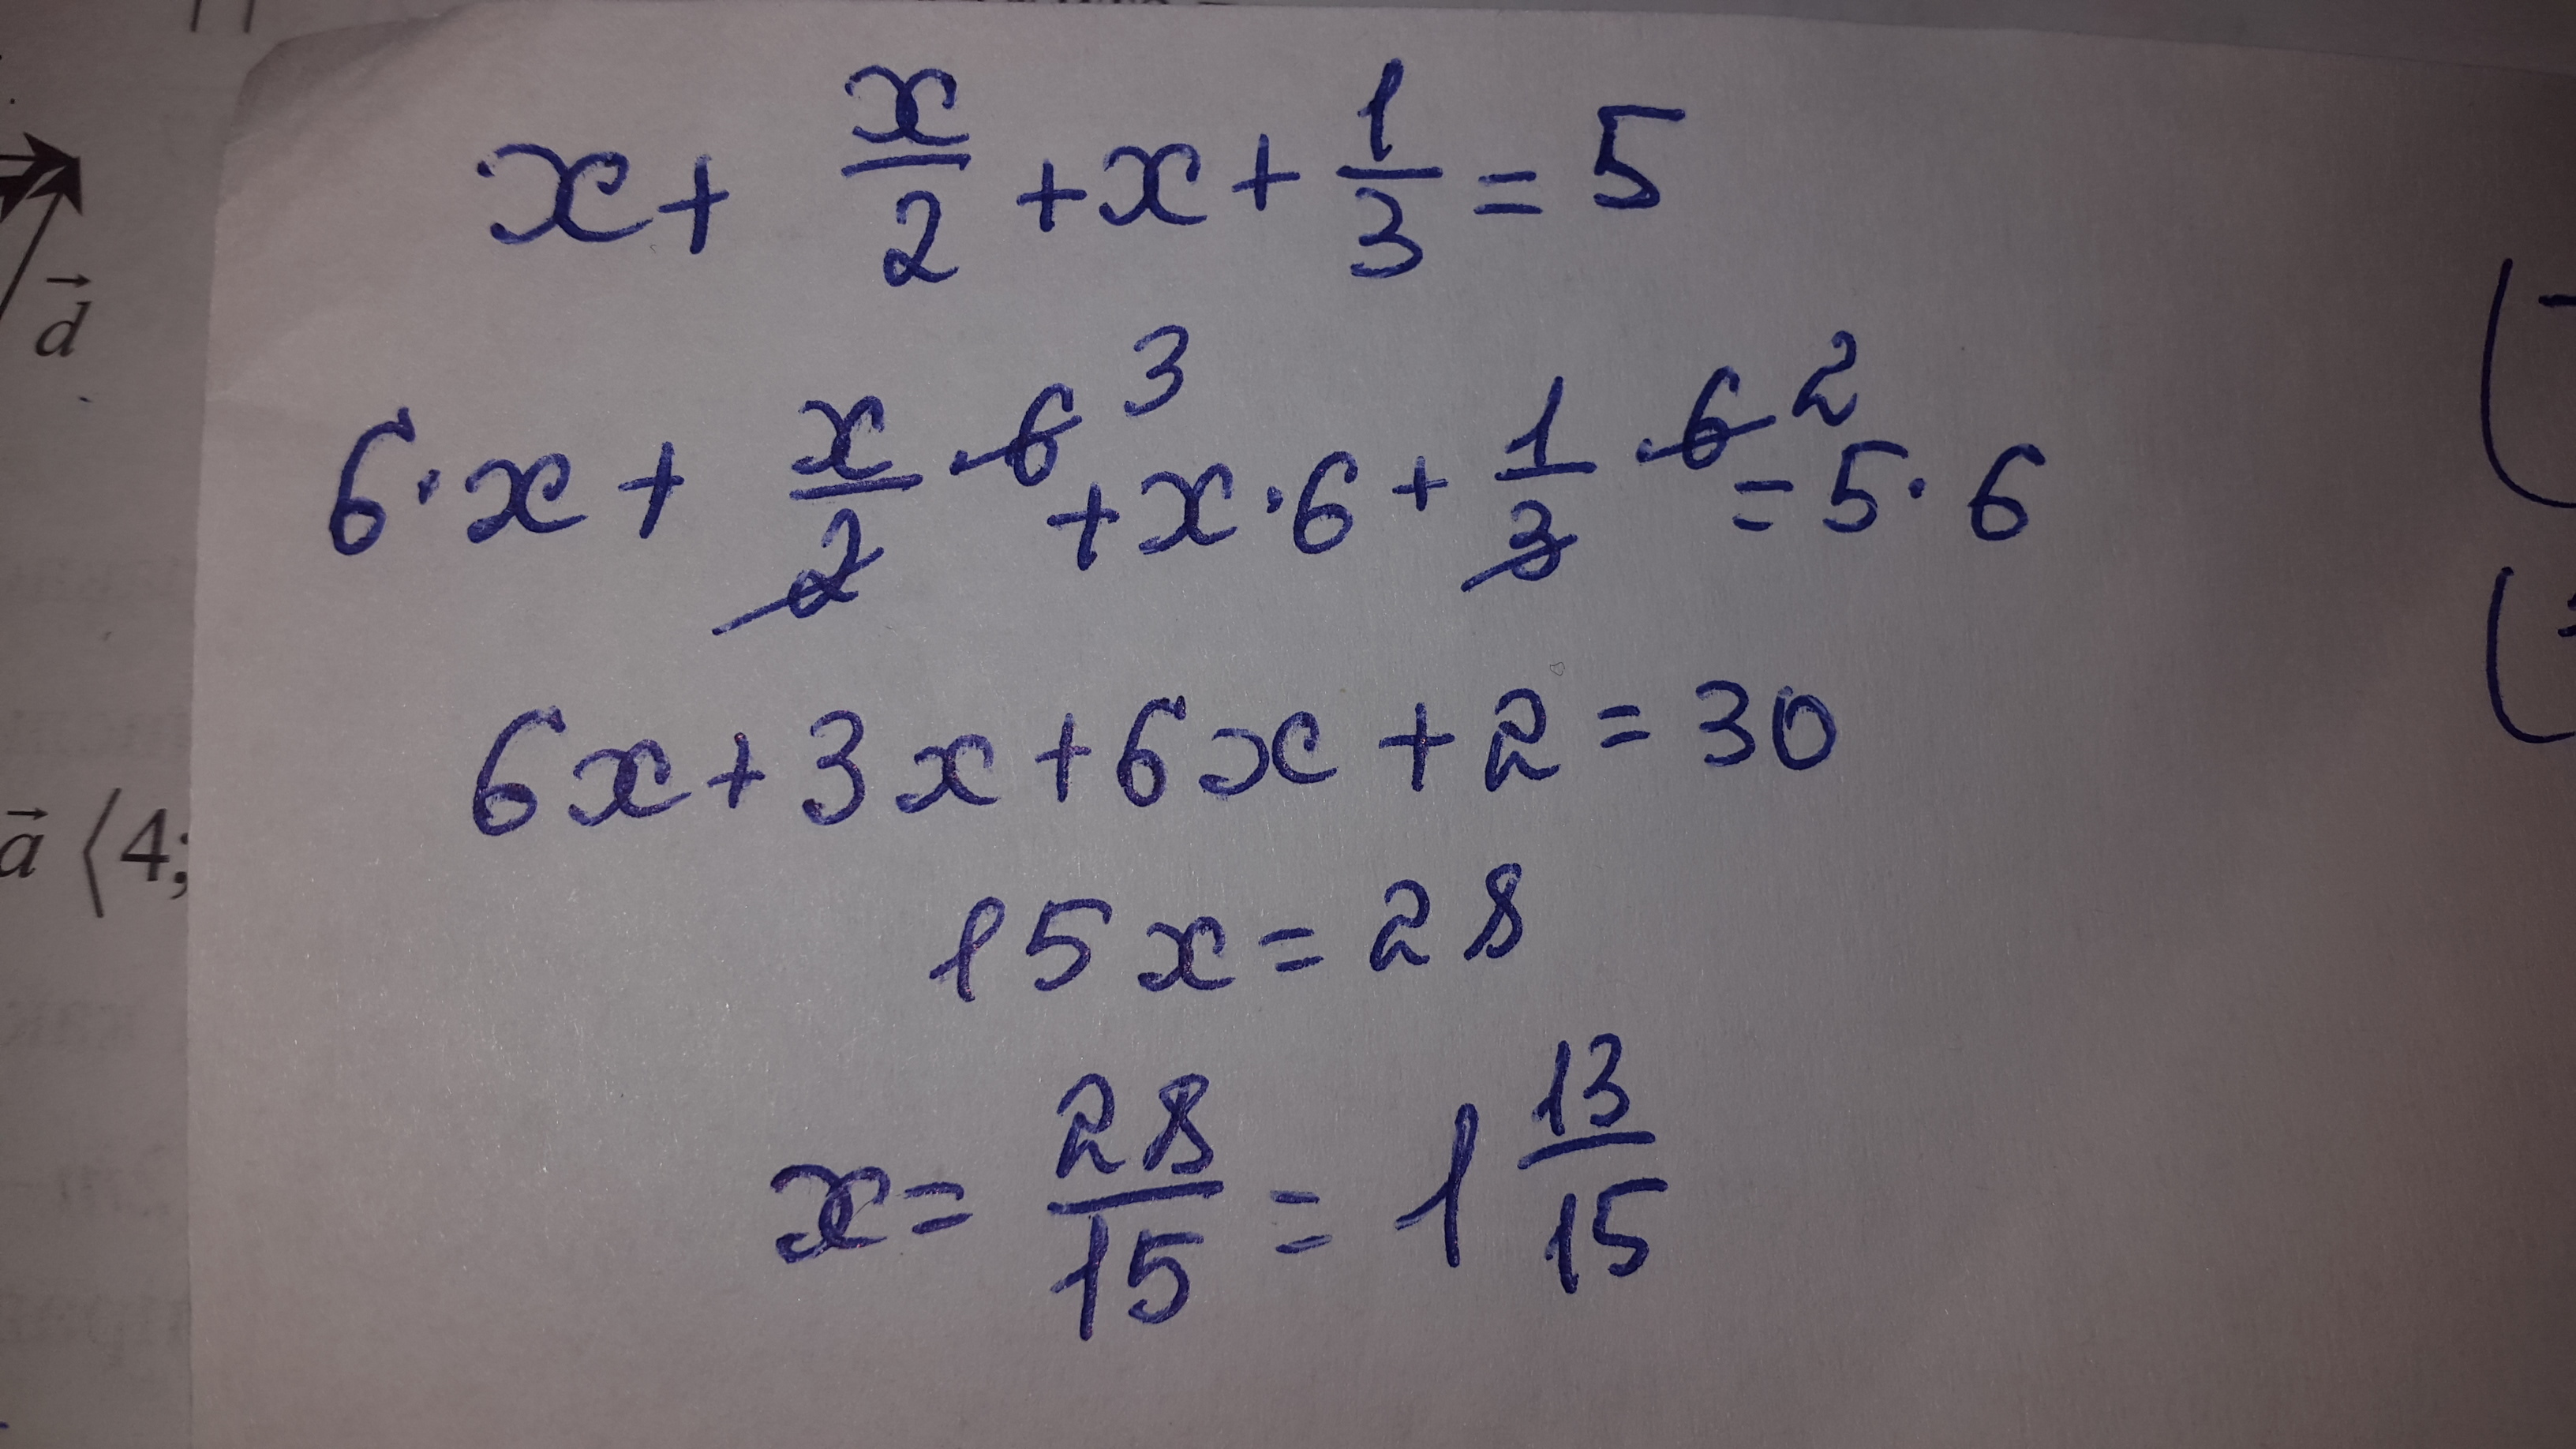 x + x/2 + x + 1/3 = 5
6·x + x/2 · 6 3 + x·6 + 1/3 · 6 2 = 5·6
6x + 3x + 6x + 2 = 30
15x = 28
x = 28/15 = 1 13/15
d
a ⟨4;